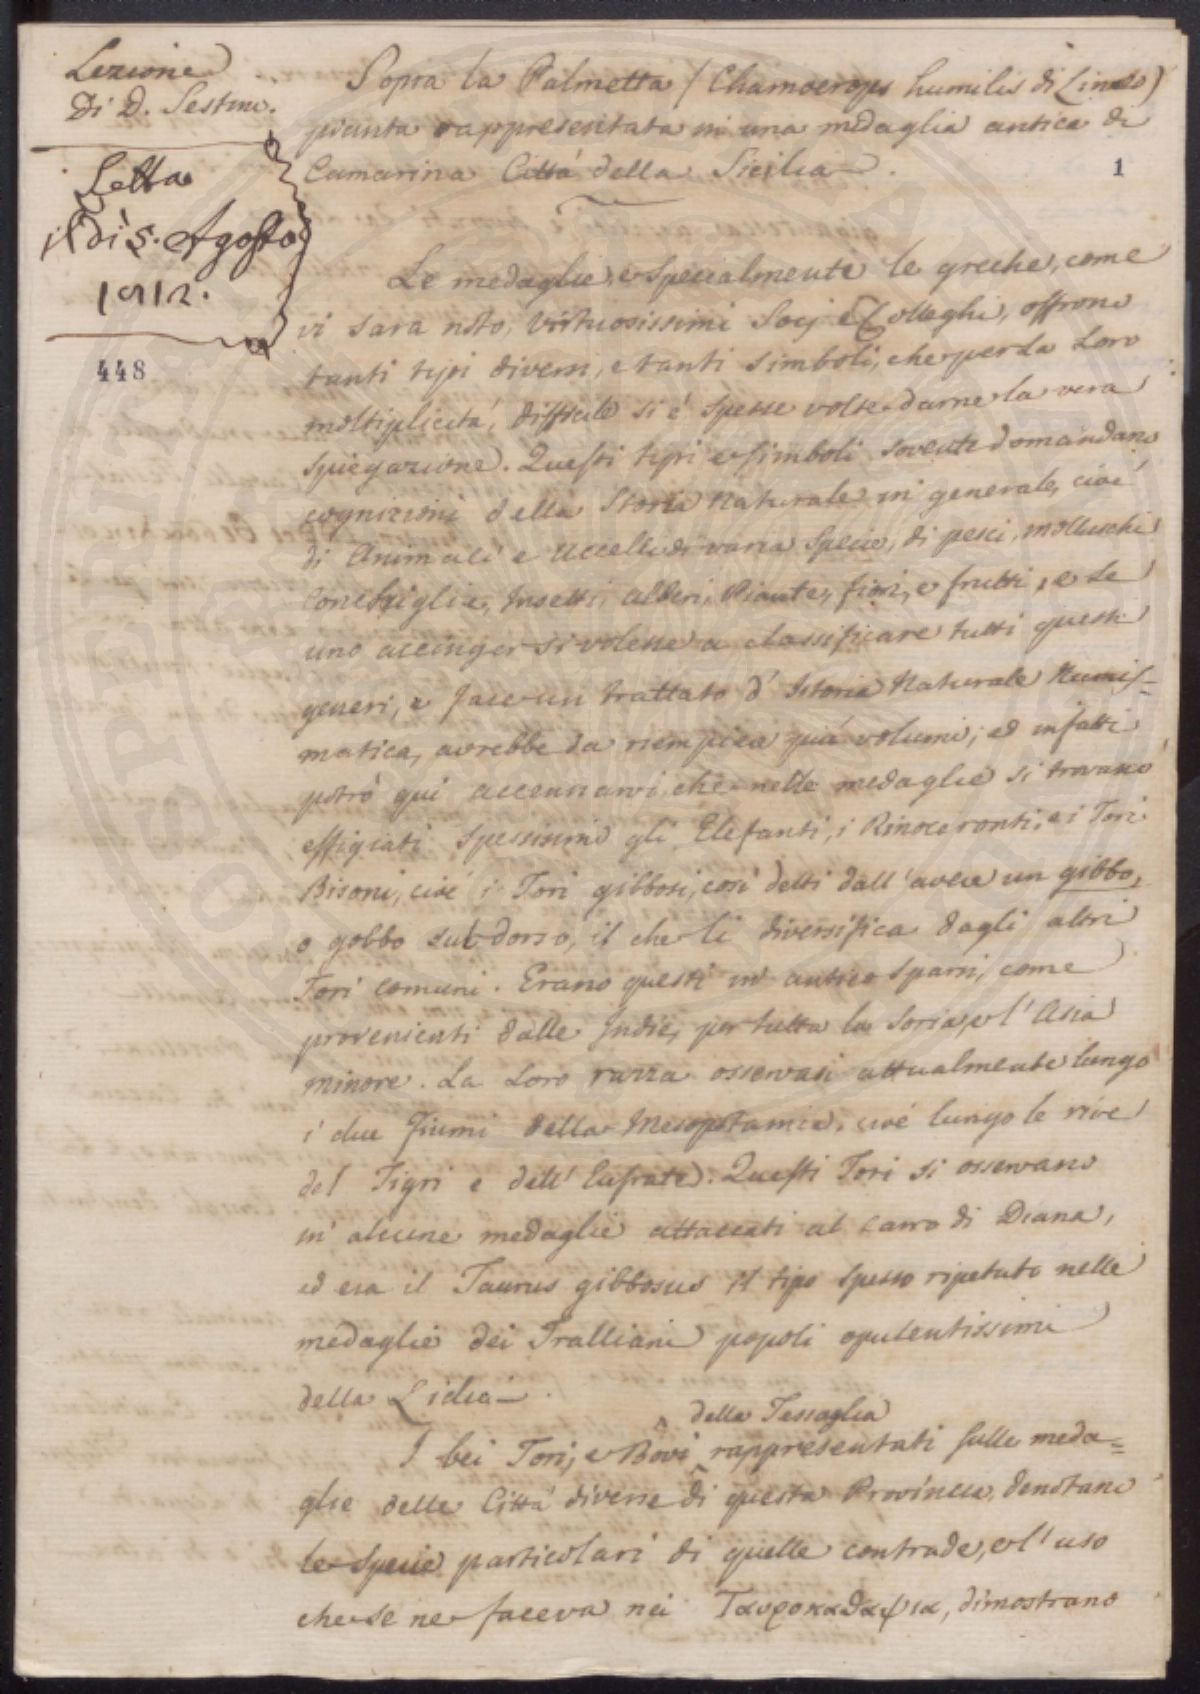 Lezione
Di D. Sestini.
Letta
il dì 5. Agosto
1812.
448
Sopra la Palmetta (Chamoerops humilis di Linneo)
pianta rappresentata in una medaglia antica di
Camarina Città della Sicilia.
1
Le medaglie, e specialmente le greche, come
vi sara noto, virtuosissimi Socj e Colleghi, offrono
tanti tipi diversi, e tanti simboli, che per la loro
moltiplicità, difficile si é spesse volte darne la vera
spiegazione. Questi tipi e simboli sovente domandano
cognizioni della Storia Naturale in generale, cioé
di Animali e Uccelli di varia specie, di pesci, molluschi
Conchiglie, Insetti, alberi, Piante, fiori, e frutti, e se
uno accinger si volesse a classificare tutti questi
generi, e fare un trattato d' Istoria Naturale Numis-
matica, avrebbe da riempiere più volumi; ed infatti
potrò qui accennarvi che nelle medaglie si trovano
effigiati spessissimo gli Elefanti, i Rinoceronti, e i Tori
Bisoni, cioé i Tori gibbosi, così detti dall' avere un gibbo,
o gobbo sul dorso, il che li diversifica dagli altri
Tori comuni. Erano questi in antico sparsi, come
provenienti dalle Indie, per tutta la Soria, e l' Asia
minore. La loro razza osservasi attualmente lungo
i due fiumi della Mesopotamia, cioé lungo le rive
del Tigri e dell' Eufrate. Questi Tori si osservano
in alcune medaglie attaccati al carro di Diana,
ed era il Taurus gibbosus il tipo spesso ripetuto nelle
medaglie dei Tralliani popoli opulentissimi
della Lidia.
della Tessaglia
I bei Tori, e Bovi rappresentati sulle meda=
glie delle Città diverse di questa Provincia, denotano
le specie particolari di quelle contrade, e l' uso
che se ne faceva nei Ταυροκαθαψια, dimostrano